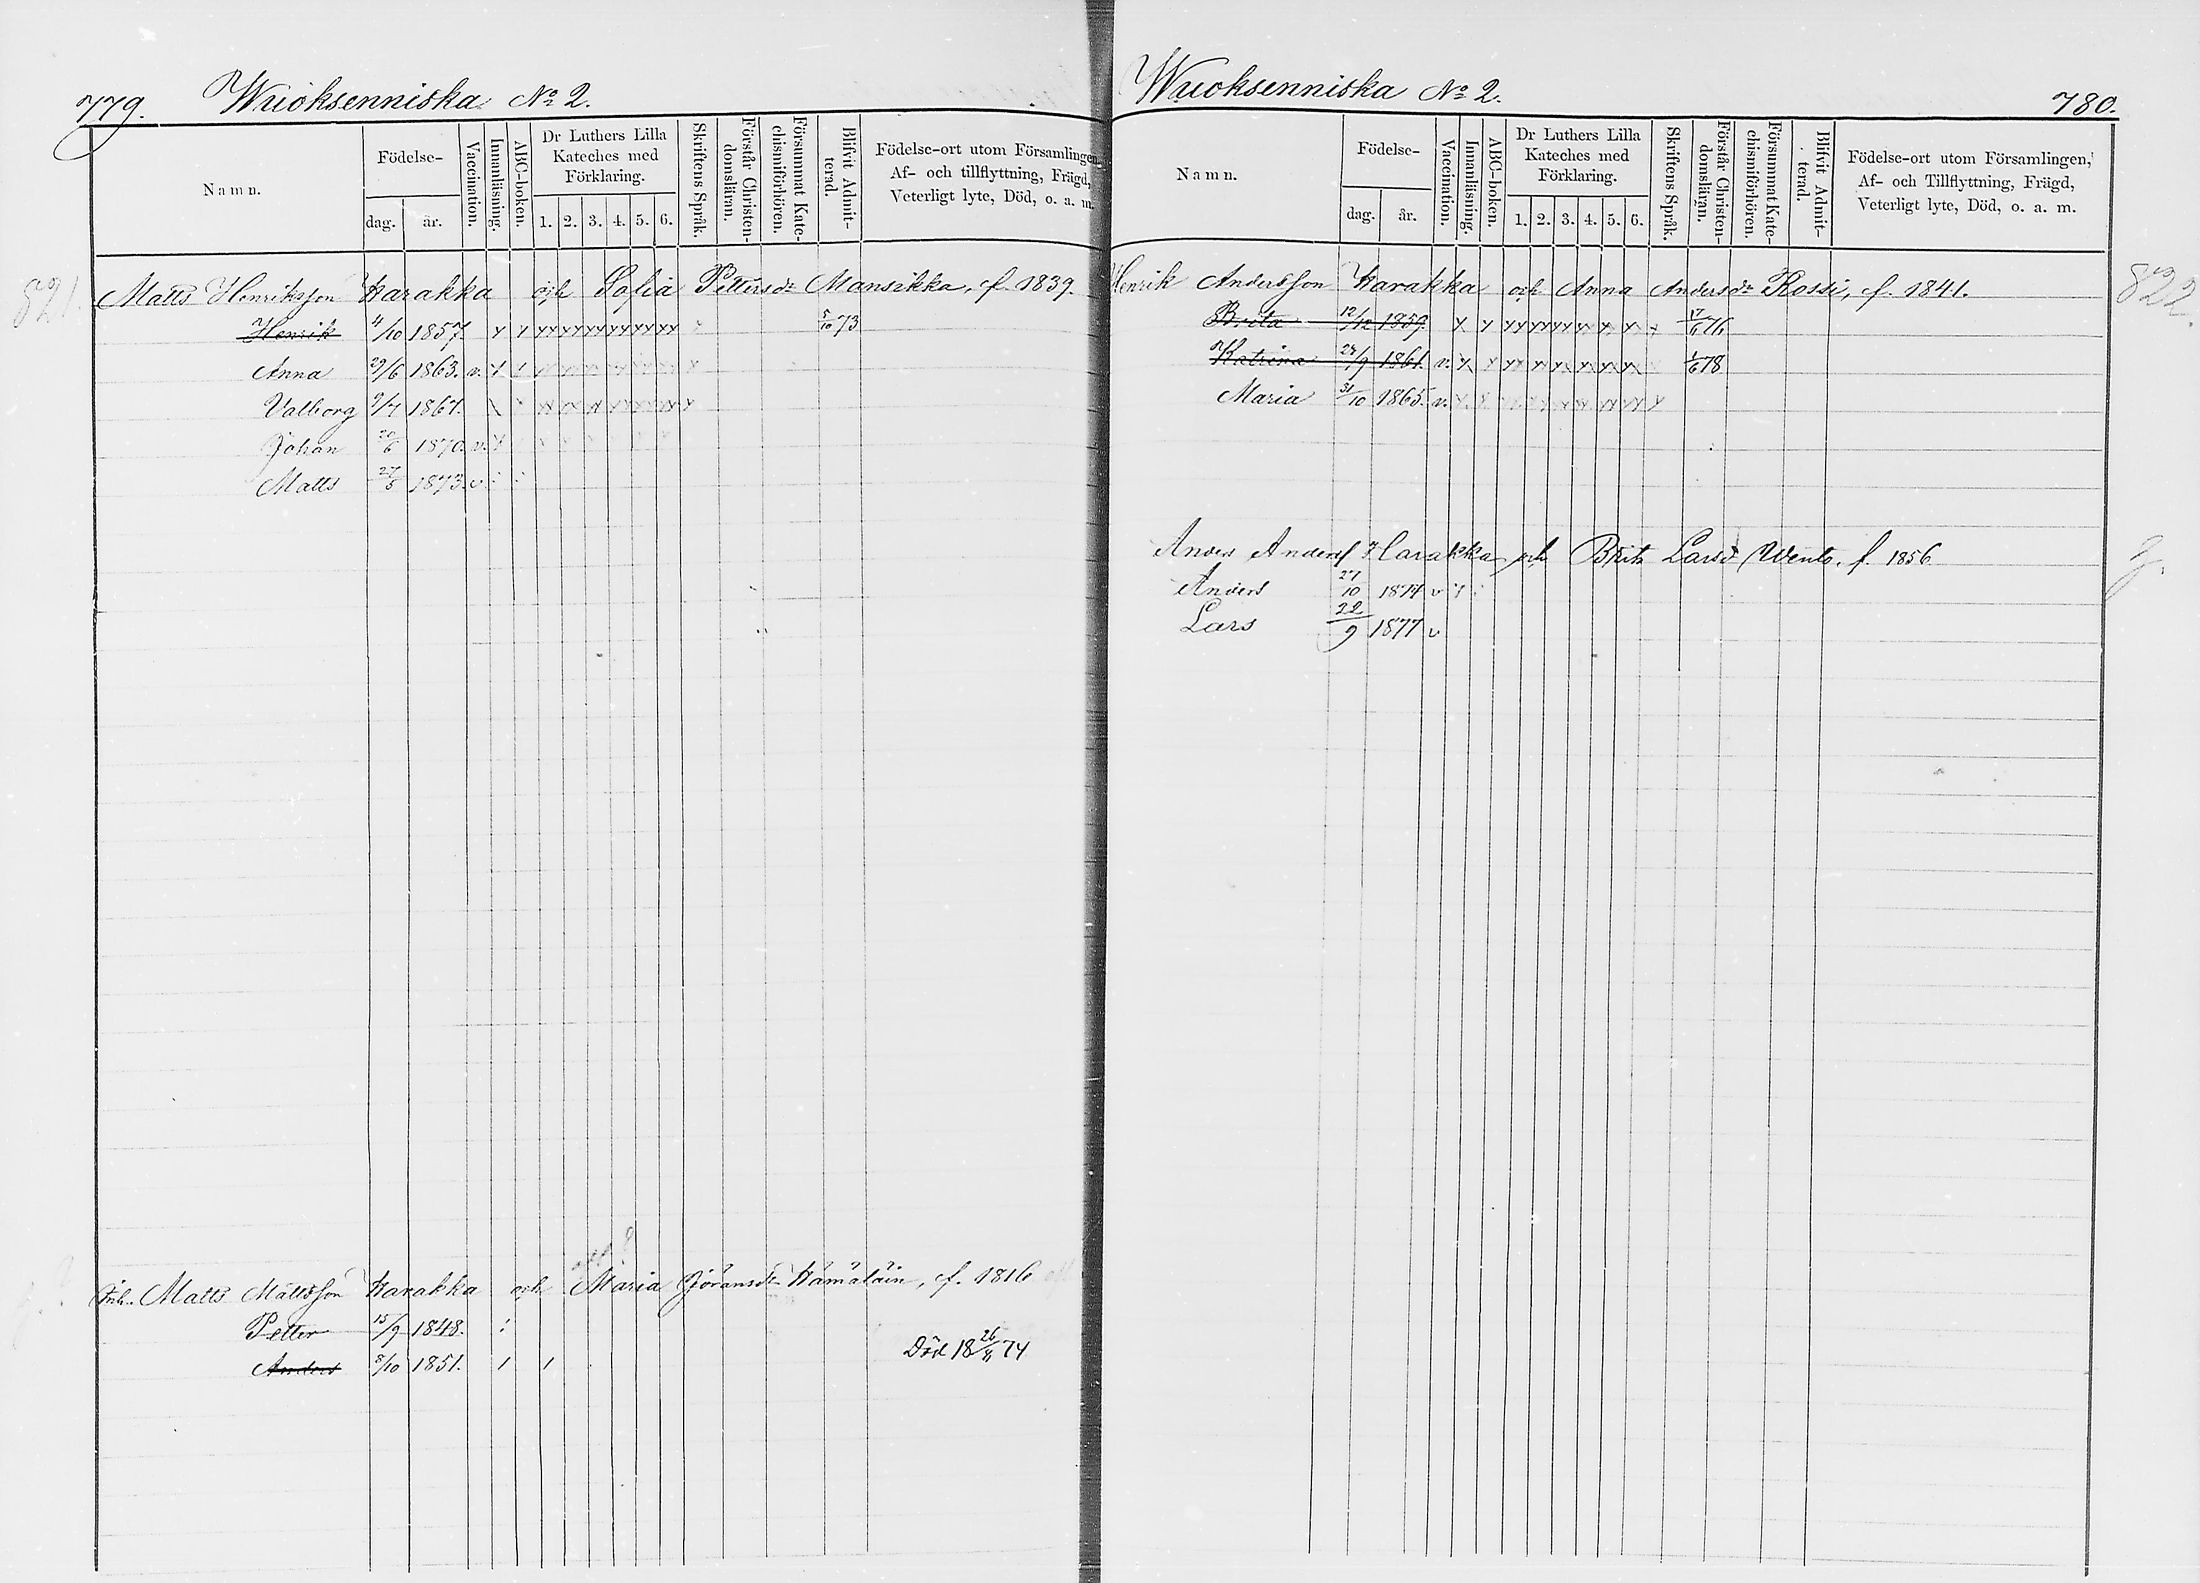 779. Wuoksenniska No 2.
Namn.
Födelse-
dag. år.
Vaccination.
Innanläsning.
ABC-boken.
Dr Luthers Lilla
Kateches med
Förklaring.
1. 2. 3. 4. 5. 6.
Skriftens Språk.
Förstår Christen-
domsläran.
Försummat Kate-
chismiförhören.
Blifvit Admit-
terad.
Födelse-ort utom Församlingen,
Af- och tillflyttning, Frägd,
Veterligt lyte, Död, o. a. m.
821.
Matts Henriksson Karakka och Sofia Pettersdr Mansikka, f. 1839.
Henrik 4/10 1857. x 1 xx xx xx xx xx xx x 5/10 73
Anna 29/6 1863. v. x
Valborg 9/7 1867.
Johan 20/6 1870. v. x
Matts 27/8 1873. v
Matts Mattsson Karakka och Maria Jöransdr Hämäläin, f. 1816
Petter 15/9 1848. :
Anders 8/10 1851. 1 1 Död 18 26/4 74
Wuoksenniska No 2. 780.
Namn.
Födelse-
dag. år.
Vaccination.
Innanläsning.
ABC-boken.
Dr Luthers Lilla
Kateches med
Förklaring.
1. 2. 3. 4. 5. 6.
Skriftens Språk.
Förstår Christen-
domsläran.
Försummat Kate-
chismiförhören.
Blifvit Admit-
terad.
Födelse-ort utom Församlingen,
Af- och Tillflyttning, Frägd,
Veterligt lyte, Död, o. a. m.
Henrik Andersson Karakka och Anna Andersdr Rossi, f. 1841. 822.
Brita 12/12 1859. x x xx xx xx x x x x 17/6 76
Katrina 24/9 1861. v. x x xx x x x x x 1/6 78
Maria 31/10 1865. v. x x
Anders Andersf Karakka och Brita Larsd Wento. f. 1856.
Anders 27/10 1874 v
Lars 22/9 1877 v